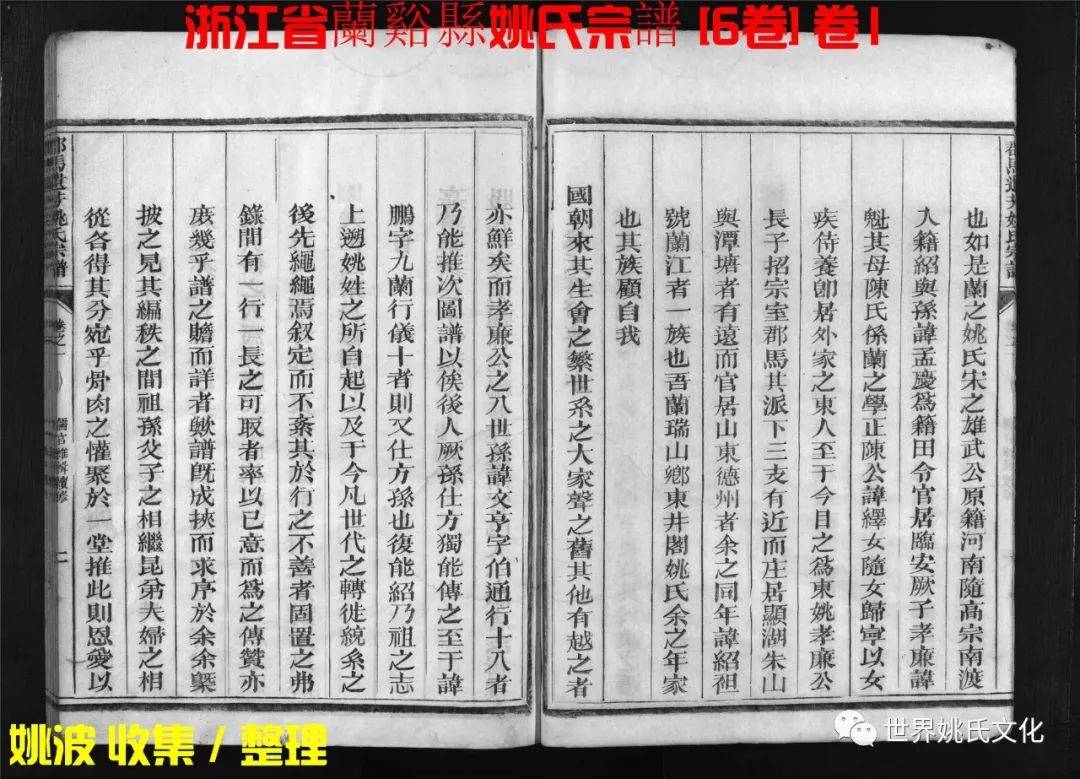 浙江省蘭谿縣姚氏宗譜 [6卷] 卷1
也如是蘭之姚氏宋之雄武公原籍河南隨高宗南渡
入籍紹與孫諱孟慶爲籍田令官居臨安厥子孝廉諱
魁其母陳氏係蘭之學正陳公諱繹女隨女歸寧以女
疾侍養卽居外家之東人至于今目之爲東姚孝廉公
長子招宗室郡馬其派下三支有近而庄居顯湖朱山
與潭塘者有遠而官居山東德州者余之同年諱紹袒
號蘭江者一族也吾蘭瑞山鄉東井閣姚氏余之年家
也其族顧自我
國朝來其生會之繁世系之大家聲之舊其他有越之者
亦鮮矣而孝廉公之八世孫諱文亨字伯通行十八者
乃能推次圖譜以俟後人厥孫仕方獨能傳之至于諱
鵬字九蘭行儀十者則又仕方孫也復能紹乃祖之志
上遡姚姓之所自起以及于今凡世代之轉徙統系之
後先繩繩焉叙定而不紊其於行之不善者固置之弗
錄間有一行一長之可取者率以已意而爲之傳贊亦
庶幾乎譜之贍而詳者歟譜旣成挾而求序於余余槩
披之見其編秩之間祖孫父子之相繼昆弟夫婦之相
從各得其分宛乎骨肉之懽聚於一堂推此則恩愛以
姚氏宗譜
卷之一
姚波 收集 / 整理
世界姚氏文化